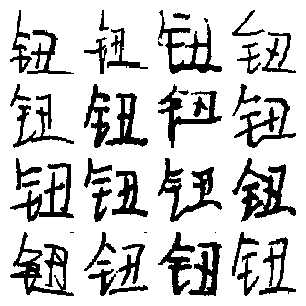 钮钮钮钮
钮钮钮钮
钮钮钮钮
钮钮钮钮